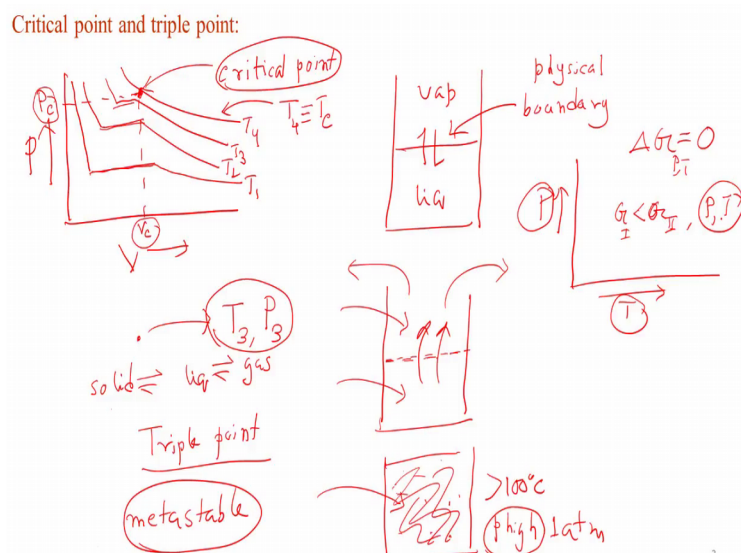 Critical point and triple point:
critical point
Pc
P
T4 ≡ Tc
T4
T3
T2
T1
Vc
V
vap
liq
physical
boundary
ΔG = 0
P,T
P
G_I < G_II, P,T
T
T3, P3
solid ⇌ liq ⇌ gas
Triple point
metastable
>100°C
P high 1atm